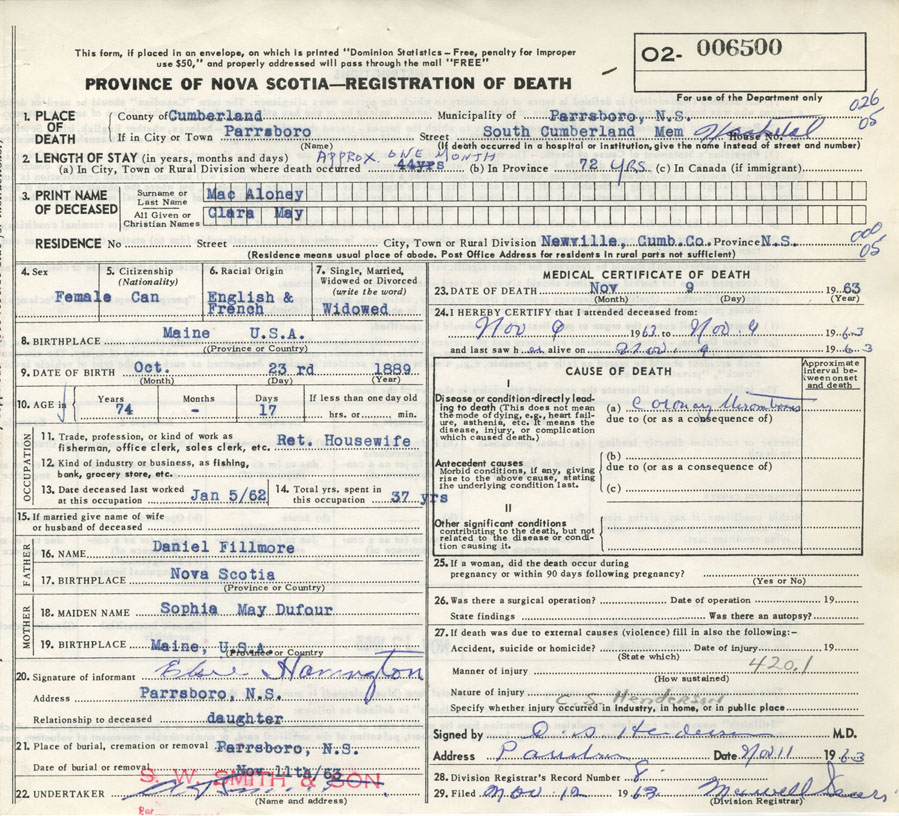 This form, if placed in an envelope, on which is printed "Dominion Statistics – Free, penalty for improper
use $50," and properly addressed will pass through the mail "FREE"
O2- 006500
PROVINCE OF NOVA SCOTIA—REGISTRATION OF DEATH
For use of the Department only
026
05
1. PLACE OF DEATH
County of Cumberland Municipality of Parrsboro, N.S.
If in City or Town Parrsboro Street South Cumberland Mem Hospital House No.
(Name) (If death occurred in a hospital or institution, give the name instead of street and number)
2. LENGTH OF STAY (in years, months and days) APPROX. ONE MONTH
(a) In City, Town or Rural Division where death occurred 44yrs (b) In Province 72 YRS (c) In Canada (if immigrant)
3. PRINT NAME OF DECEASED
Surname or Last Name Mac Aloney
All Given or Christian Names Clara May
000
05
RESIDENCE No Street City, Town or Rural Division Newville, Cumb.Co. Province N.S.
(Residence means usual place of abode. Post Office Address for residents in rural parts not sufficient)
4. Sex 5. Citizenship (Nationality) 6. Racial Origin 7. Single, Married, Widowed or Divorced (write the word)
Female Can English & French Widowed
8. BIRTHPLACE Maine U.S.A.
(Province or Country)
9. DATE OF BIRTH Oct. 23 rd 1889
(Month) (Day) (Year)
10. AGE in Years Months Days If less than one day old
74 - 17 hrs. or min.
OCCUPATION
11. Trade, profession, or kind of work as fisherman, office clerk, sales clerk, etc. Ret. Housewife
12. Kind of industry or business, as fishing, bank, grocery store, etc.
13. Date deceased last worked at this occupation Jan 5/62 14. Total yrs. spent in this occupation 37 yrs
15. If married give name of wife or husband of deceased
FATHER
16. NAME Daniel Fillmore
17. BIRTHPLACE Nova Scotia
(Province or Country)
MOTHER
18. MAIDEN NAME Sophia May Dufour
19. BIRTHPLACE Maine, U.S.A.
(Province or Country
20. Signature of informant Elsie Harrington
Address Parrsboro, N.S.
Relationship to deceased daughter
21. Place of burial, cremation or removal Parrsboro, N.S.
Date of burial or removal Nov 11th/63
S. W. SMITH & SON
22. UNDERTAKER
(Name and address)
Per
MEDICAL CERTIFICATE OF DEATH
23. DATE OF DEATH Nov 9 1963
(Month) (Day) (Year)
24. I HEREBY CERTIFY that I attended deceased from:
Nov 9 1963 to Nov. 9 1963
and last saw h er alive on Nov. 9 1963
CAUSE OF DEATH Approximate interval between onset and death
I
Disease or condition directly leading to death (This does not mean the mode of dying, e.g., heart failure, asthenia, etc. It means the disease, injury, or complication which caused death.)
(a) Coronary thrombosis
due to (or as a consequence of)
Antecedent causes
Morbid conditions, if any, giving rise to the above cause, stating the underlying condition last.
(b)
due to (or as a consequence of)
(c)
II
Other significant conditions
contributing to the death, but not related to the disease or condition causing it.
25. If a woman, did the death occur during pregnancy or within 90 days following pregnancy?
(Yes or No)
26. Was there a surgical operation? Date of operation 19
State findings Was there an autopsy?
27. If death was due to external causes (violence) fill in also the following:–
Accident, suicide or homicide? Date of injury 19
(State which)
Manner of injury 420.1
(How sustained)
Nature of injury
C.S. Henderson
Specify whether injury occurred in industry, in home, or in public place
Signed by C.S. Henderson M.D.
Address Parrsboro Date Nov 11 1963
28. Division Registrar's Record Number 8
29. Filed Nov 12 1963 Maxwell
(Division Registrar)